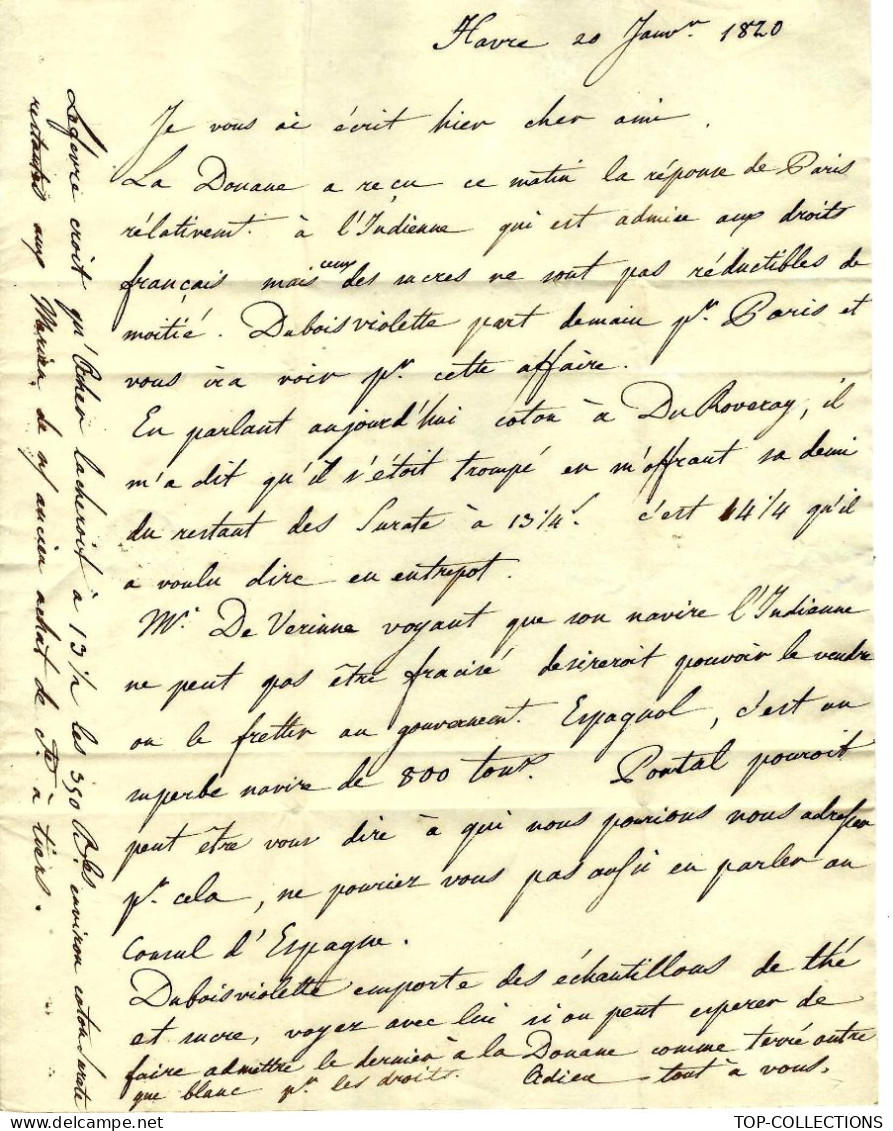 Havre 20 Janvr 1820
Je vous ai écrit hier cher ami.
La Douane a reçu ce matin la réponse de Paris
rélativemt. à l'Indienne qui est admise aux droits
français mais ceux des sucres ne sont pas réductibles de
moitié. Duboisviolette part demain pr. Paris et
vous ira voir pr. cette affaire.
En parlant aujourd'hui coton à DuRoveray, il
m'a dit qu'il s'étoit trompé en m'offrant sa demi
du restant des Surate à 13 1/4 c'est 14 1/4 qu'il
a voulu dire en entrepot.
Mr. De Verinne voyant que son navire l'Indienne
ne peut pas être fracisé desireroit pouvoir le vendre
ou le fretter au gouvernemt. Espagnol, c'est un
superbe navire de 800 tonx. Pontal pouroit
peut être vous dire à qui nous pourions nous adresser
pr. cela, ne pouriez vous pas aussi en parler au
Consul d'Espagne.
Duboisviolette emporte des échantillons de thé
et sucre, voyez avec lui si on peut esperer de
faire admettre le dernier à la Douane comme terré autre
que blanc pr. les droits. Adieu tout à vous.
Lefevre croit qu' lacheroit à 13 1/2 les 350 Bles. environ coton Surate
restantes aux de n/ ancien achat de cte. à tiers.
TOP-COLLECTIONS